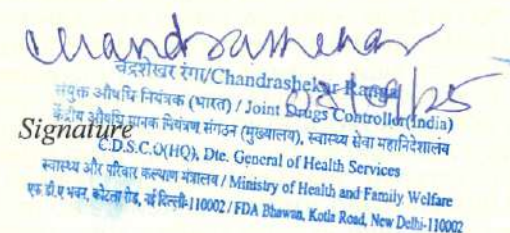 Chandrashekar
चंद्रशेखर रंगा/Chandrashekar Ranga
संयुक्त औषधि नियंत्रक (भारत) / Joint Drugs Controller(India)
केंद्रीय औषधि मानक नियंत्रण संगठन (मुख्यालय), स्वास्थ्य सेवा महानिदेशालय
Signature
C.D.S.C.O(HQ), Dte. General of Health Services
स्वास्थ्य और परिवार कल्याण मंत्रालय / Ministry of Health and Family Welfare
एफ.डी.ए भवन, कोटला रोड, नई दिल्ली-110002 / FDA Bhawan, Kotla Road, New Delhi-110002